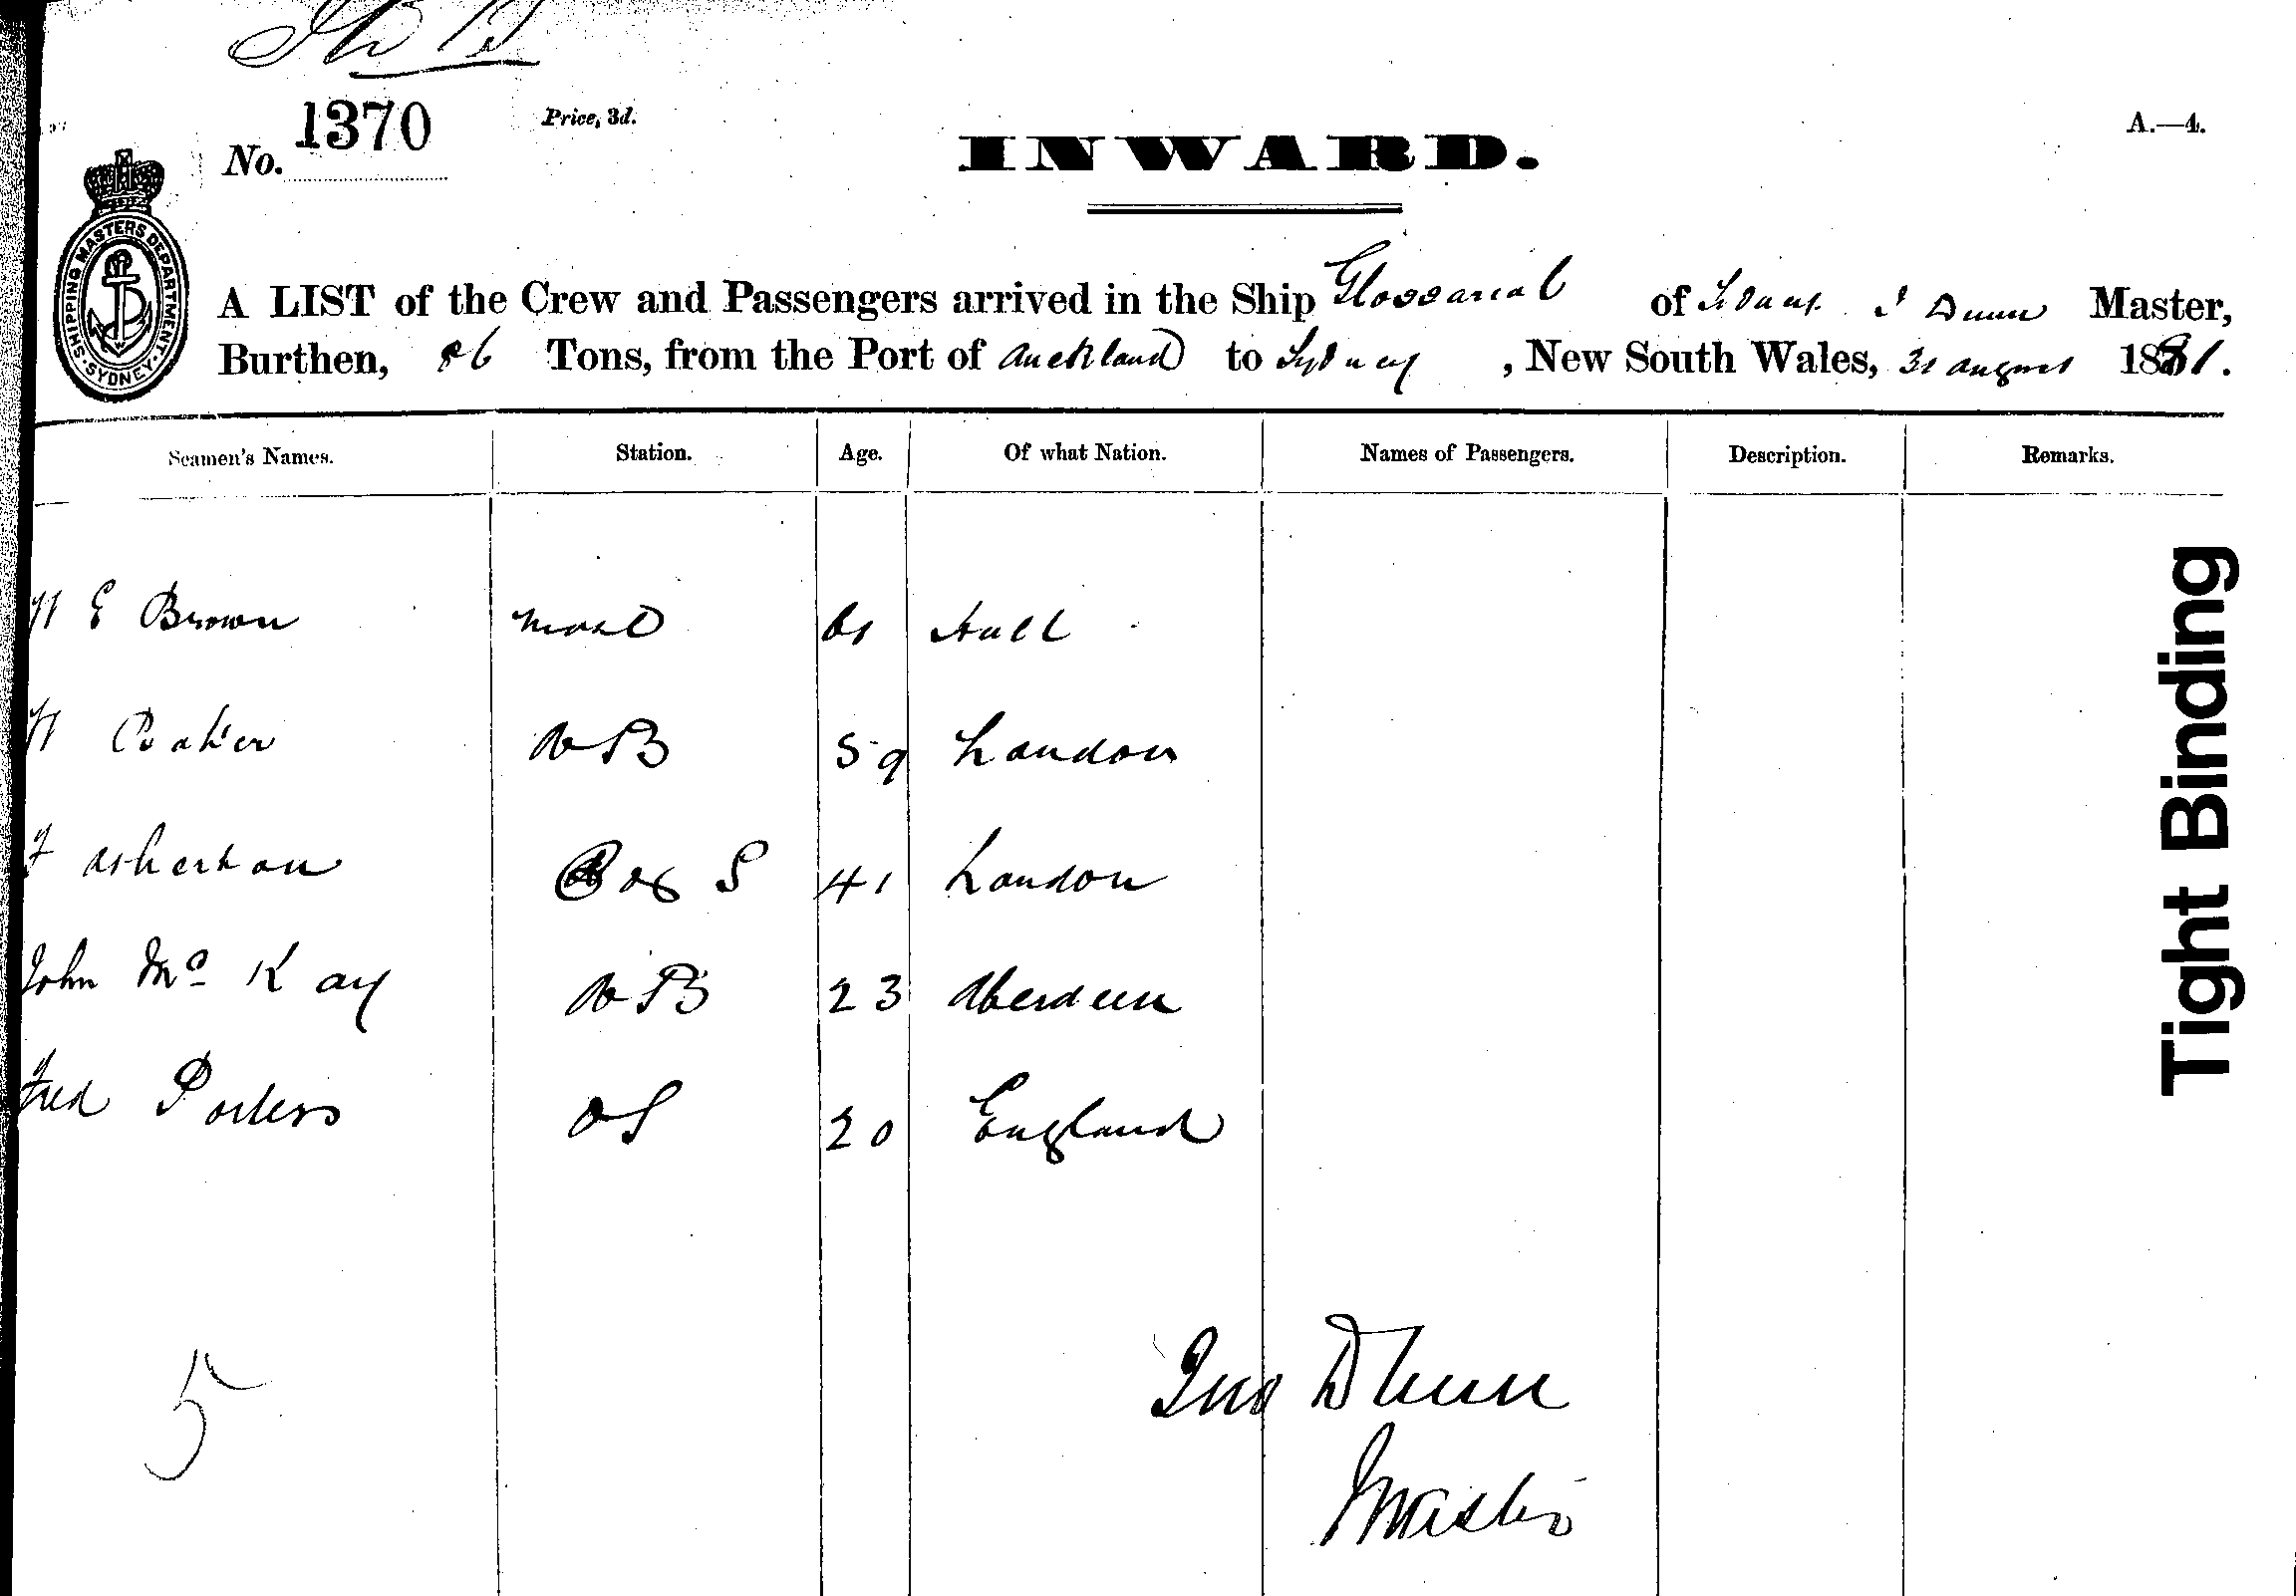 No. 1370
Price, 3d.
A.—4.
INWARD.
SHIPPING MASTERS DEPARTMENT. SYDNEY.
A LIST of the Crew and Passengers arrived in the Ship Glossarial of Sydney J Dunn Master,
Burthen, 86 Tons, from the Port of Auckland to Sydney, New South Wales, 31 August 1881.
Seamen's Names. Station. Age. Of what Nation. Names of Passengers. Description. Remarks.
W E Brown Mate 61 Hull
W AB 59 London
F Asherton Cook S 41 London
John Mc Kay AB 23 Aberdeen
Fred Porters OS 20 England
5
Jno Dunn
Master
Tight Binding